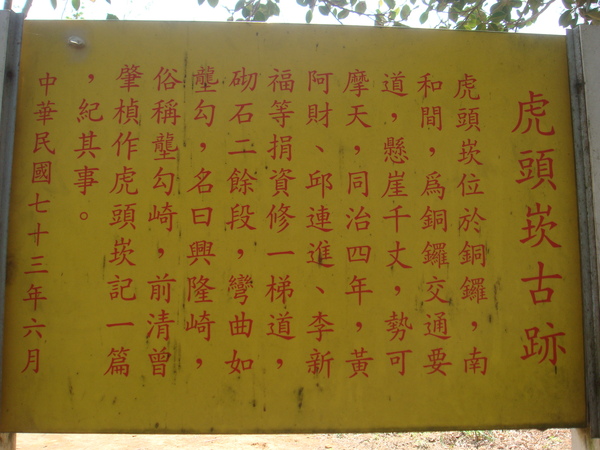 虎頭崁古跡
虎頭崁位於銅鑼，南
和間，爲銅鑼交通要
道，懸崖千丈，勢可
摩天，同治四年，黃
阿財、邱連進、李新
福等捐資修一梯道，
砌石二餘段，彎曲如
壟勾，名曰興隆崎，
俗稱壟勾崎，前清曾
肇楨作虎頭崁記一篇
，紀其事。
中華民國七十三年六月